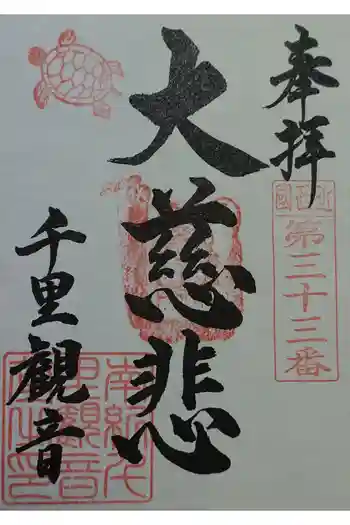 奉拝
西国
第三十三番
大慈悲
千里観音